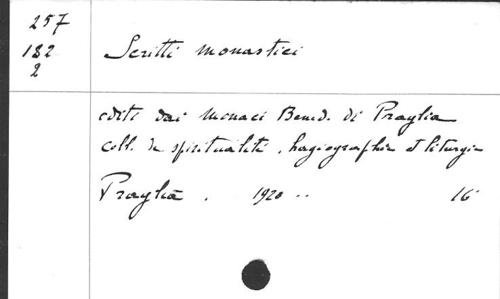 257
182
2
Scritti monastici
editi dai Monaci Bened. di Praglia
coll. de spiritualité, hagiographie et liturgie
Praglia. 1920 .. 16